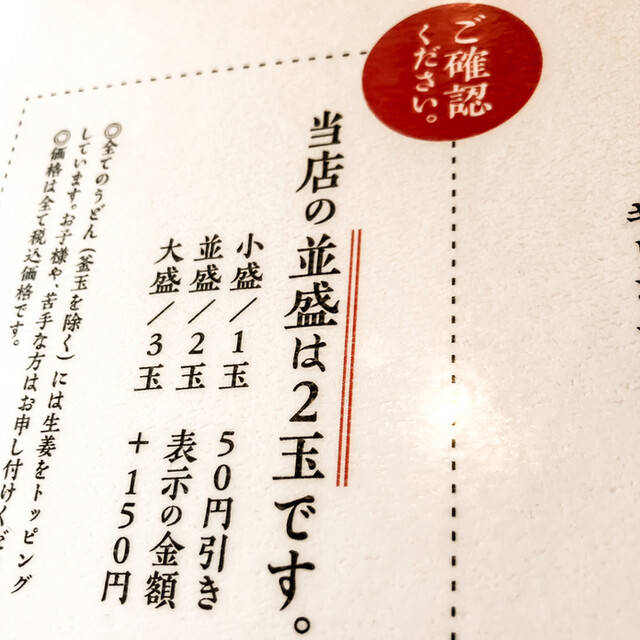 ご確認
ください。
当店の並盛は2玉です。
小盛/1玉 50円引き
並盛/2玉 表示の金額
大盛/3玉 +150円
◎全てのうどん(釜玉を除く)には生姜をトッピング
しています。お子様や、苦手な方はお申し付けくだ
◎価格は全て税込価格です。